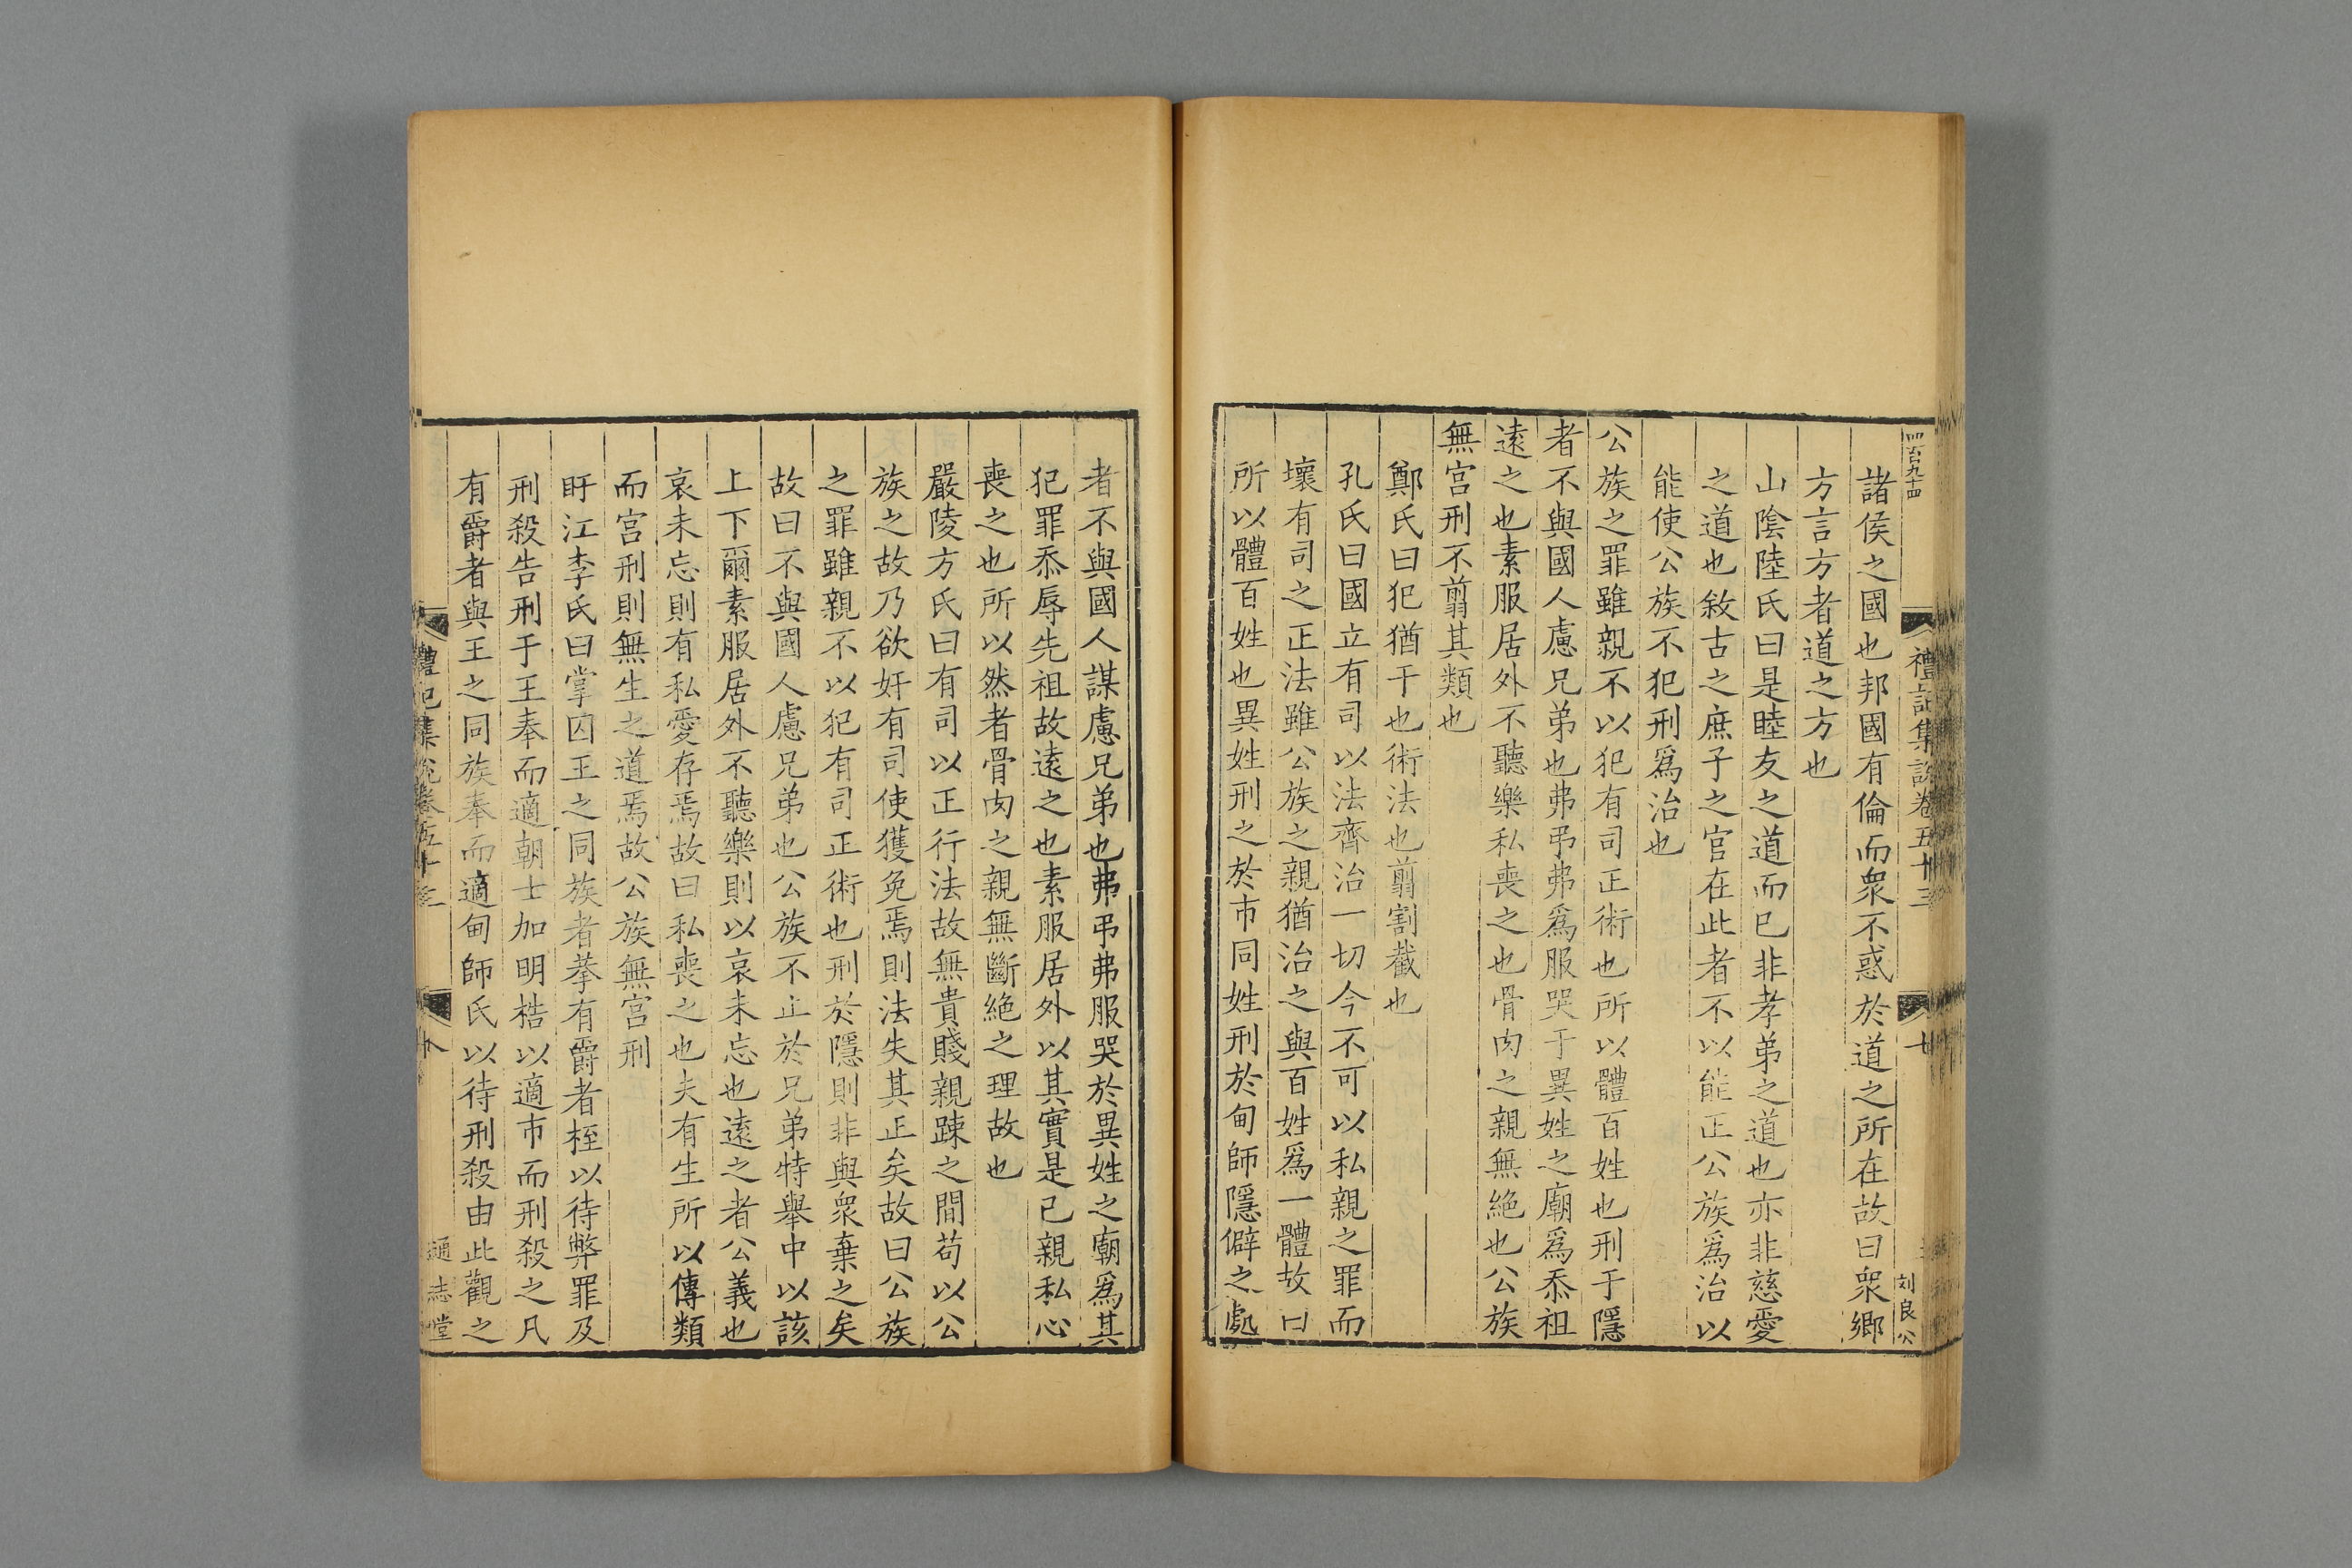 四百九十四
禮記集說卷五十三
廿
刘良公
諸侯之國也邦國有倫而衆不惑於道之所在故曰衆鄉
方言方者道之方也
山陰陸氏曰是睦友之道而已非孝弟之道也亦非慈愛
之道也敘古之庶子之官在此者不以能正公族爲治以
能使公族不犯刑爲治也
公族之罪雖親不以犯有司正術也所以體百姓也刑于隱
者不與國人慮兄弟也弗弔弗爲服哭于異姓之廟爲忝祖
遠之也素服居外不聽樂私喪之也骨肉之親無絕也公族
無宮刑不翦其類也
鄭氏曰犯猶干也術法也翦割截也
孔氏曰國立有司以法齊治一切今不可以私親之罪而
壞有司之正法雖公族之親猶治之與百姓爲一體故曰
所以體百姓也異姓刑之於市同姓刑於甸師隱僻之處
者不與國人謀慮兄弟也弗弔弗服哭於異姓之廟爲其
犯罪忝辱先祖故遠之也素服居外以其實是已親私心
喪之也所以然者骨肉之親無斷絕之理故也
嚴陵方氏曰有司以正行法故無貴賤親踈之間苟以公
族之故乃欲奸有司使獲免焉則法失其正矣故曰公族
之罪雖親不以犯有司正術也刑於隱則非與衆棄之矣
故曰不與國人慮兄弟也公族不止於兄弟特舉中以該
上下爾素服居外不聽樂則以哀未忘也遠之者公義也
哀未忘則有私愛存焉故曰私喪之也夫有生所以傳類
而宮刑則無生之道焉故公族無宮刑
盱江李氏曰掌囚王之同族者拲有爵者桎以待弊罪及
刑殺告刑于王奉而適朝士加明梏以適市而刑殺之凡
有爵者與王之同族奉而適甸師氏以待刑殺由此觀之
禮記集說卷五十三
通志堂